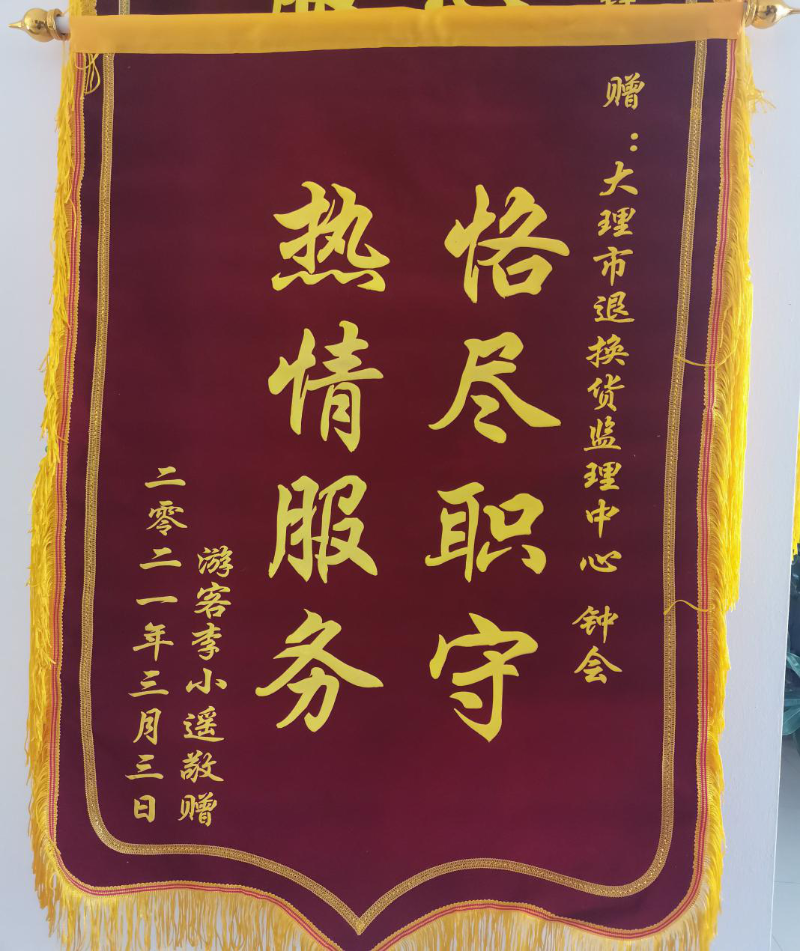 赠：大理市退换货监理中心 钟会
恪尽职守
热情服务
游客李小遥敬赠
二零二一年三月三日